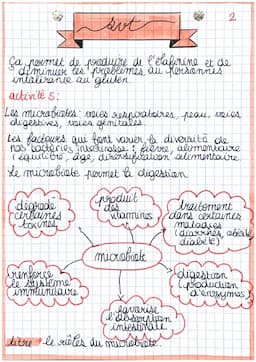 svt
2
Ça permet de produire de l'élafinine et de
diminuer les problèmes au personnes
intolérante au gluten.
activité 5:
Les microbiotes: voies respiratoires, peau, voies
digestives, voies génitales.
Les facteurs qui font varier la diversité de
nos bactéries intestinales: fièvre, alimentaire
(équilibré), âge, diversification alimentaire
Le microbiote permet la digestion
dégrade
certaines
toxines
produit
des
vitamines
traitement
dans certaines
maladies
(diarrhés, obésité,
diabète)
microbiote
renforce
le système
immunitaire
favorise
l'absorption
intestinale
digestion
(production
d'enzymes)
titre: le rôles du microbiote.